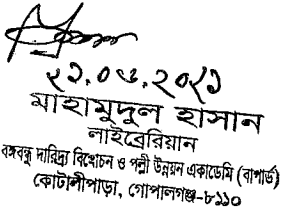 ২১.০৩.২০২১
মাহামুদুল হাসান
লাইব্রেরিয়ান
বঙ্গবন্ধু দারিদ্র্য বিমোচন ও পল্লী উন্নয়ন একাডেমি (বাপার্ড)
কোটালীপাড়া, গোপালগঞ্জ-৮১১০